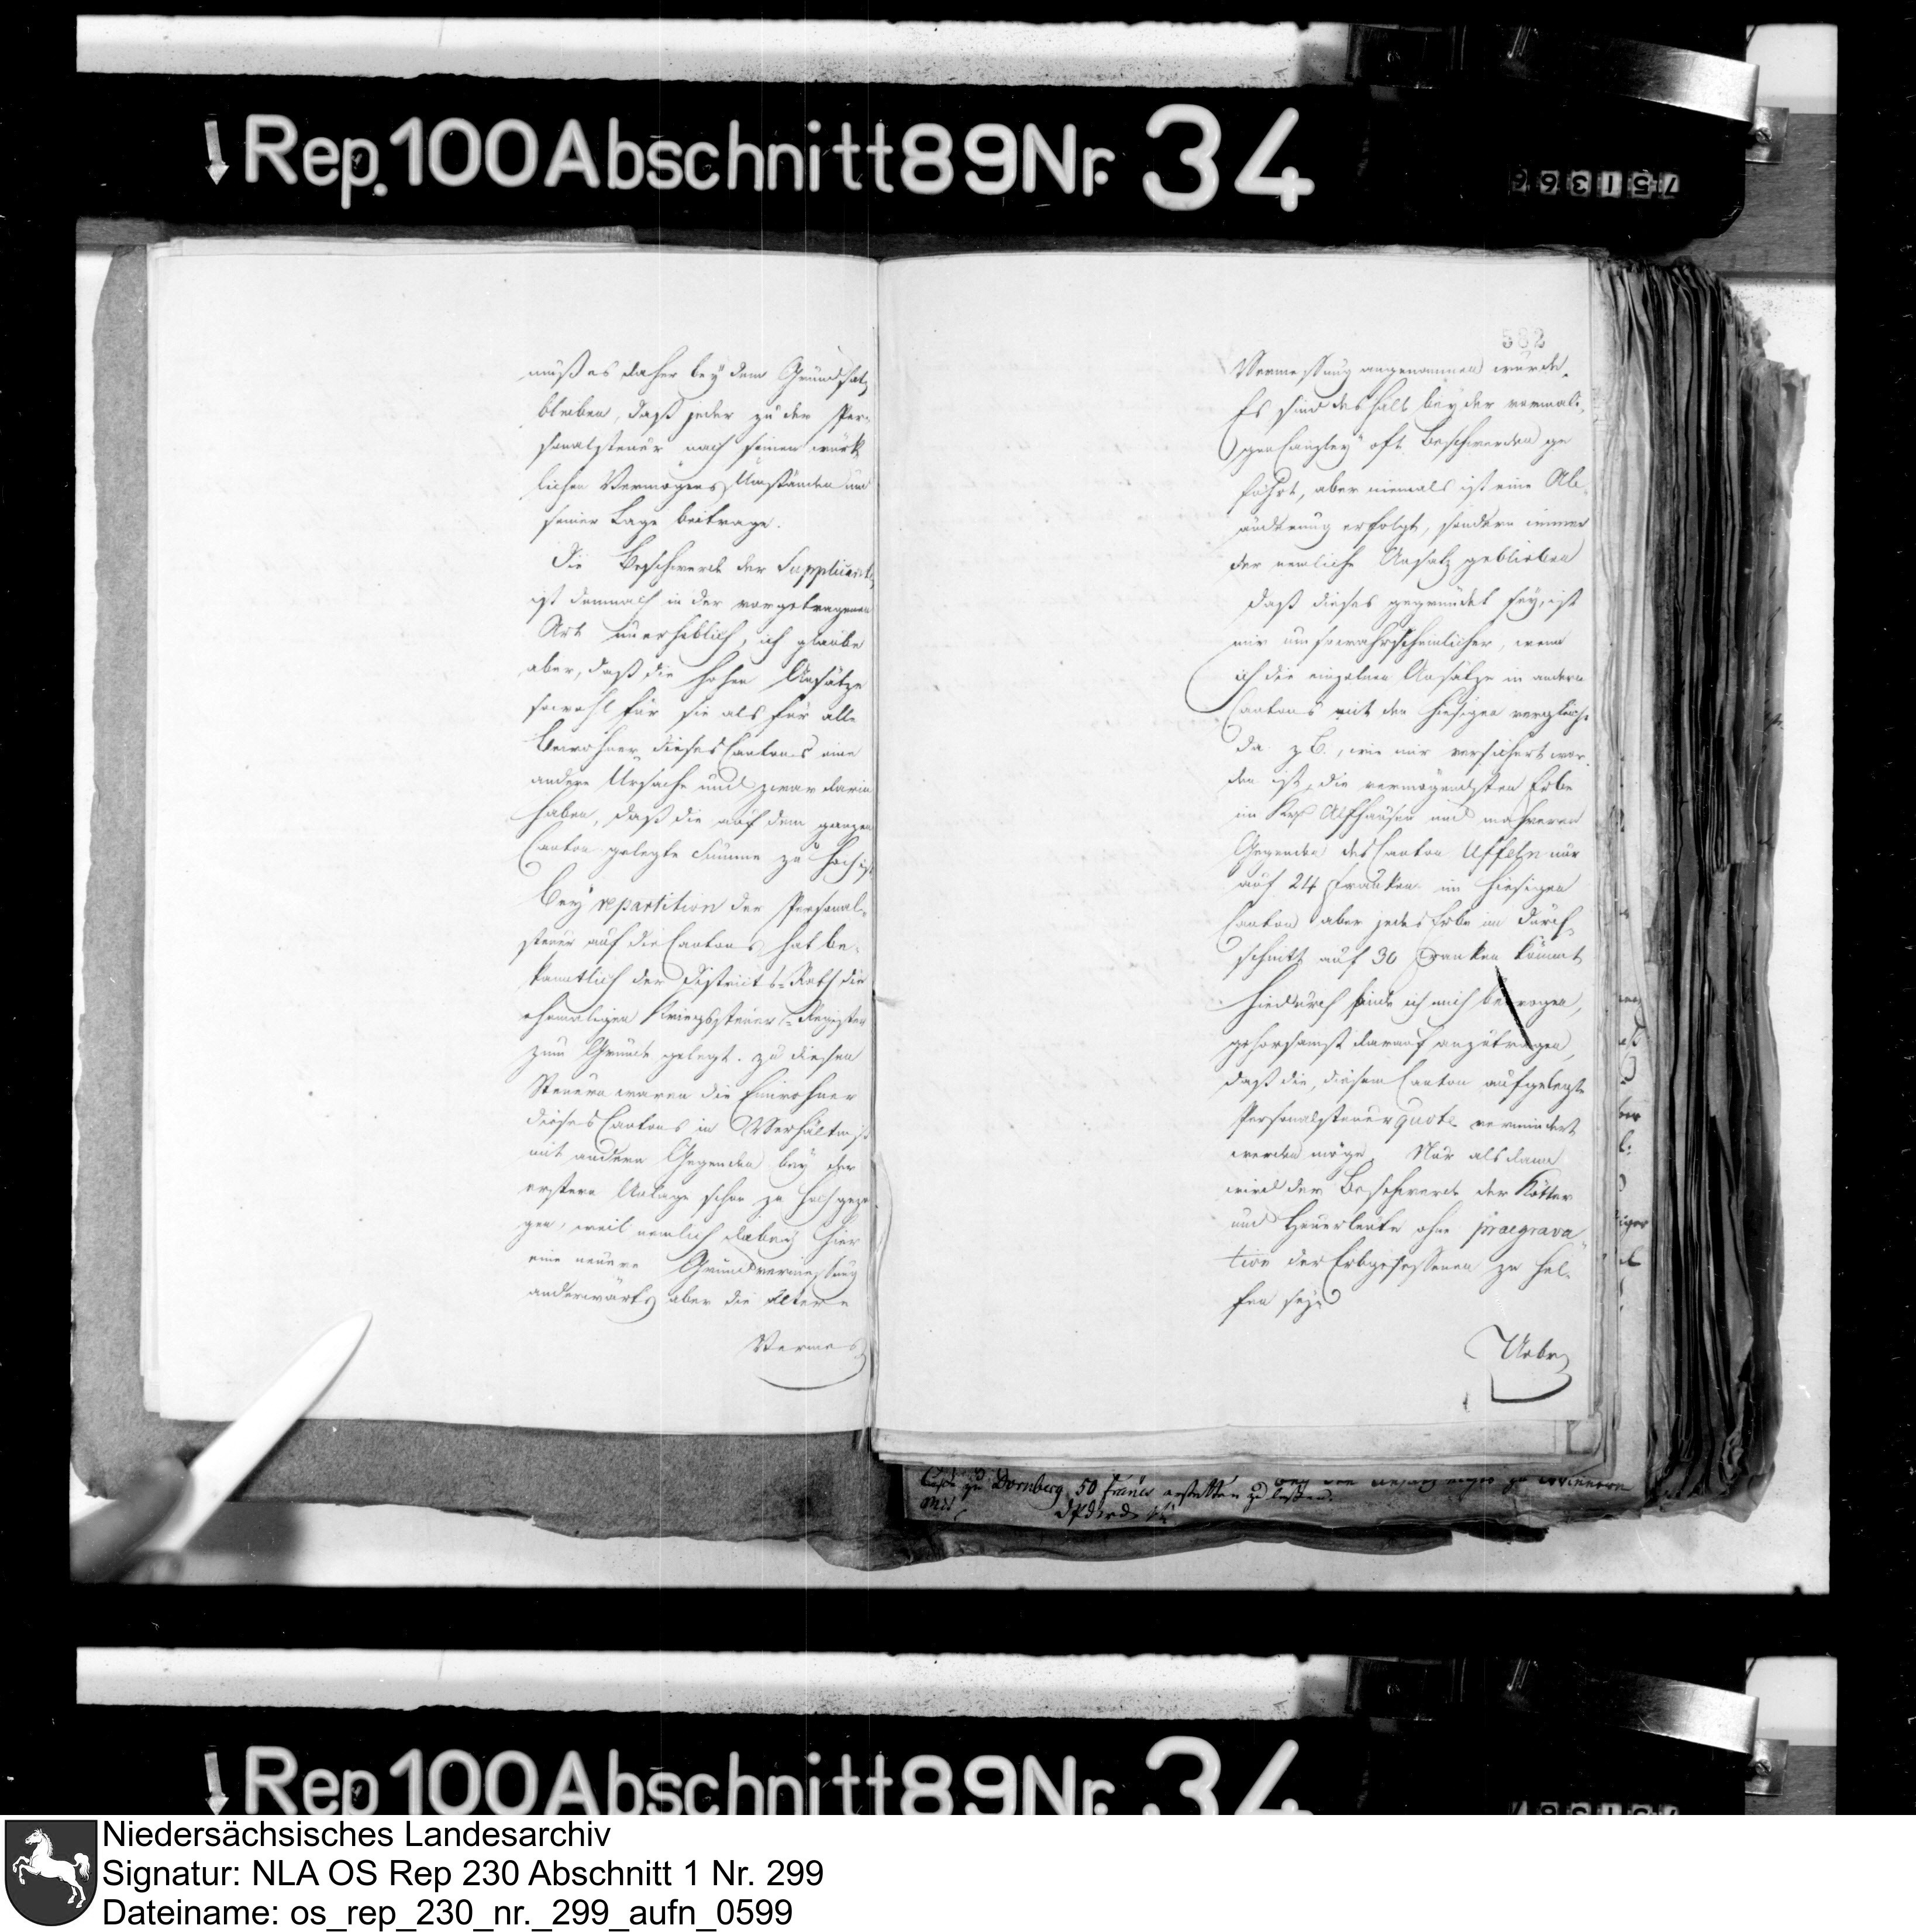 Rep. 100 Abschnitt 89 Nr. 34
751366
muß es daher bey dem Grundsatz
bleiben, daß jeder zu der Per-
sonalsteuer nach seinen würk
lichen Vermögens Umständen und
seiner Lage beitrage.
Die Beschwerde der Supplicanten
ist demnach in der vorgetragenen
Art unerheblich, ich glaube
aber, daß die hohen Ansätze
sowohl für sie als für alle
Bewohner dieses Cantons eine
andere Ursache und zwar darin
haben, daß die auf dem ganzen
Canton gelegte Summe zu hoch ist
Bey repartition der Personal-
steuer auf die Cantons hat be-
kanntlich der Districts-Rath die
ehemaligen Kriegssteuer-Register
zum Grunde gelegt. zu diesen
Steuern waren die Einwohner
dieses Cantons in Verhältniß
mit andern Gegenden bey der
erstern Anlage schon zu hoch gezo
gen, weil nemlich dabey hier
eine neuere Grundvermessung
anderwärts aber die ältere
Vermes
582
Vermessung angenommen wurde.
Es sind deshalb bey der vormali-
gen Canzley oft Beschwerden ge
führt, aber niemals ist eine Ab-
änderung erfolgt, sondern immer
der nemliche Ansatz geblieben
daß dieses gegründet sey, ist
mir um so wahrscheinlicher, wenn
ich die einzelnen Ansätze in andern
Cantons mit den hiesigen vergleiche
da z B., wie mir versichert wor-
den ist, die vermögendsten Erbe
im Ksp Alfhausen und mehreren
Gegenden des Canton Uffeln nur
auf 24 Franken im hiesigen
Canton aber jedes Erbe im Durch-
schnitt auf 30 Franken kömmt
Hiedurch finde ich mich bewogen,
gehorsamst darauf anzutragen,
daß die, diesem Canton aufgelegte
Personalsteuer quote vermindert
werden möge. Nur alsdann
wird der Beschwerde der Kötter
und Heuerleute ohne praegrava-
tion der Erbgesessenen zu hel-
fen seyn
Uebr
zu Dornberg 50 francs erstatten zu laßen.
Rep. 100 Abschnitt 89 Nr. 34
Niedersächsisches Landesarchiv
Signatur: NLA OS Rep 230 Abschnitt 1 Nr. 299
Dateiname: os_rep_230_nr._299_aufn_0599